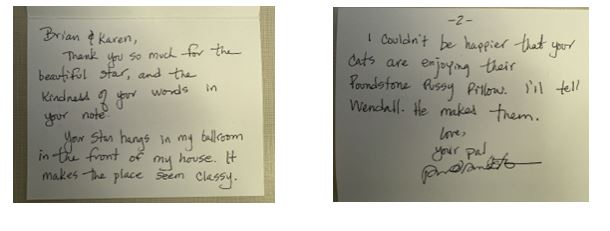 Brian & Karen,
Thank you so much for the
beautiful star, and the
kindness of your words in
your note.
Your star hangs in my ballroom
in the front of my house. It
makes the place seem classy.
-2-
I couldn't be happier that your
cats are enjoying their
Poundstone Pussy Pillow. I'll tell
Wendall. He makes them.
Love,
your pal